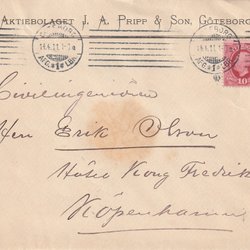 AKTIEBOLAGET J. A. PRIPP & SON, GÖTEBORG
GÖTEBORG
18.4.11.1-
Civilingeniören
Herr Erik Olson
Hôtel Kong Fredrik
Köpenhamn
10